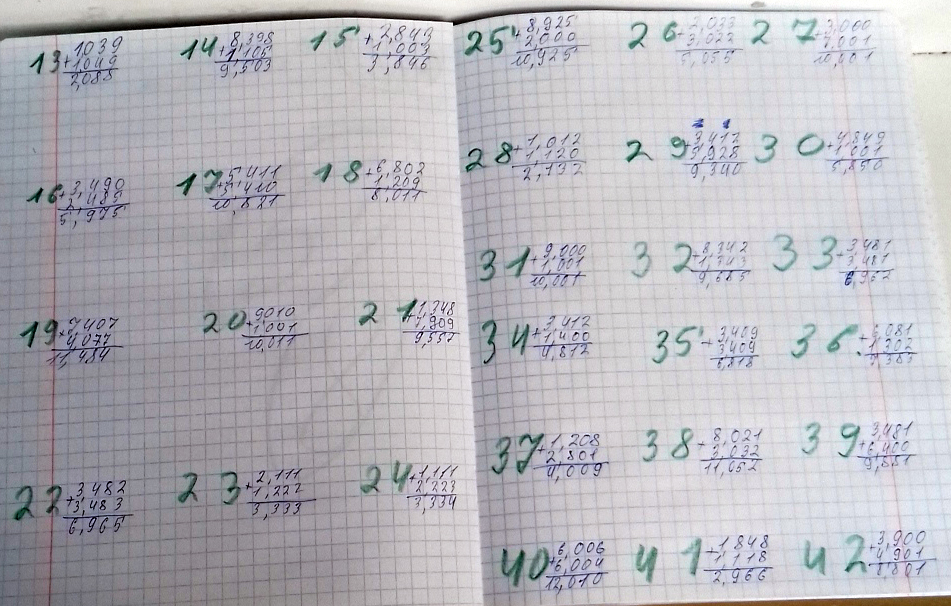 13 1039
+1049
2,088
14 8,398
+1,105
9,503
15 +2,843
1,003
3,846
16 +3,490
2,485
5,975
17 5,411
+5,410
10,821
18 +6,802
1,209
8,011
19 +7407
4,077
11,484
20 9010
+1,001
10,011
21
9,557
22 3,482
+3,483
6,965
23 +2,111
1,222
3,333
24 +1,111
2,223
3,334
25 +8,925
2,000
10,925
26 2,023
+3,032
5,055
27
+7,001
10,001
28 +1,012
1,120
2,132
29 3,412
5,928
9,340
30 +4,849
1,001
5,850
31 9,000
+1,001
10,001
32 8,342
+1,343
9,685
33 3,481
+3,481
6,962
34 +3,412
1,400
4,812
35 +3,409
3,409
6,818
36
37 +1,208
2,801
4,009
38 +8,021
3,032
11,052
39 3,481
+6,400
9,881
40 6,006
+6,004
12,010
41 +1,848
1,118
2,966
42 +3,900
4,901
8,801